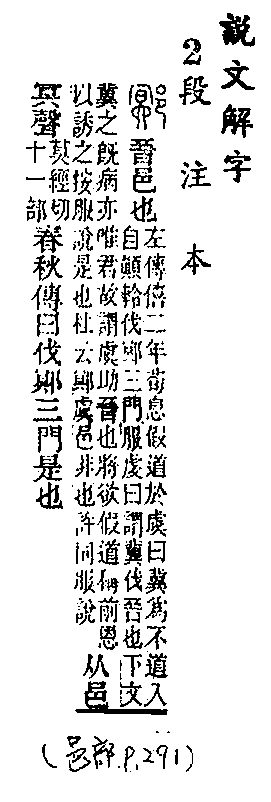 說文解字
2段注本
鄍 晉邑也
左傳僖二年荀息假道於虞曰冀為不道入
自顛軨伐鄍三門服虔曰謂冀伐晉也下文
冀之既病亦唯君故謂虞助晉也將欲假道稱前恩
以誘之按服說是也杜云鄍虞邑非也許同服說
从邑
冥聲
莫經切
十一部
春秋傳曰伐鄍三門是也
(邑部.P.291)